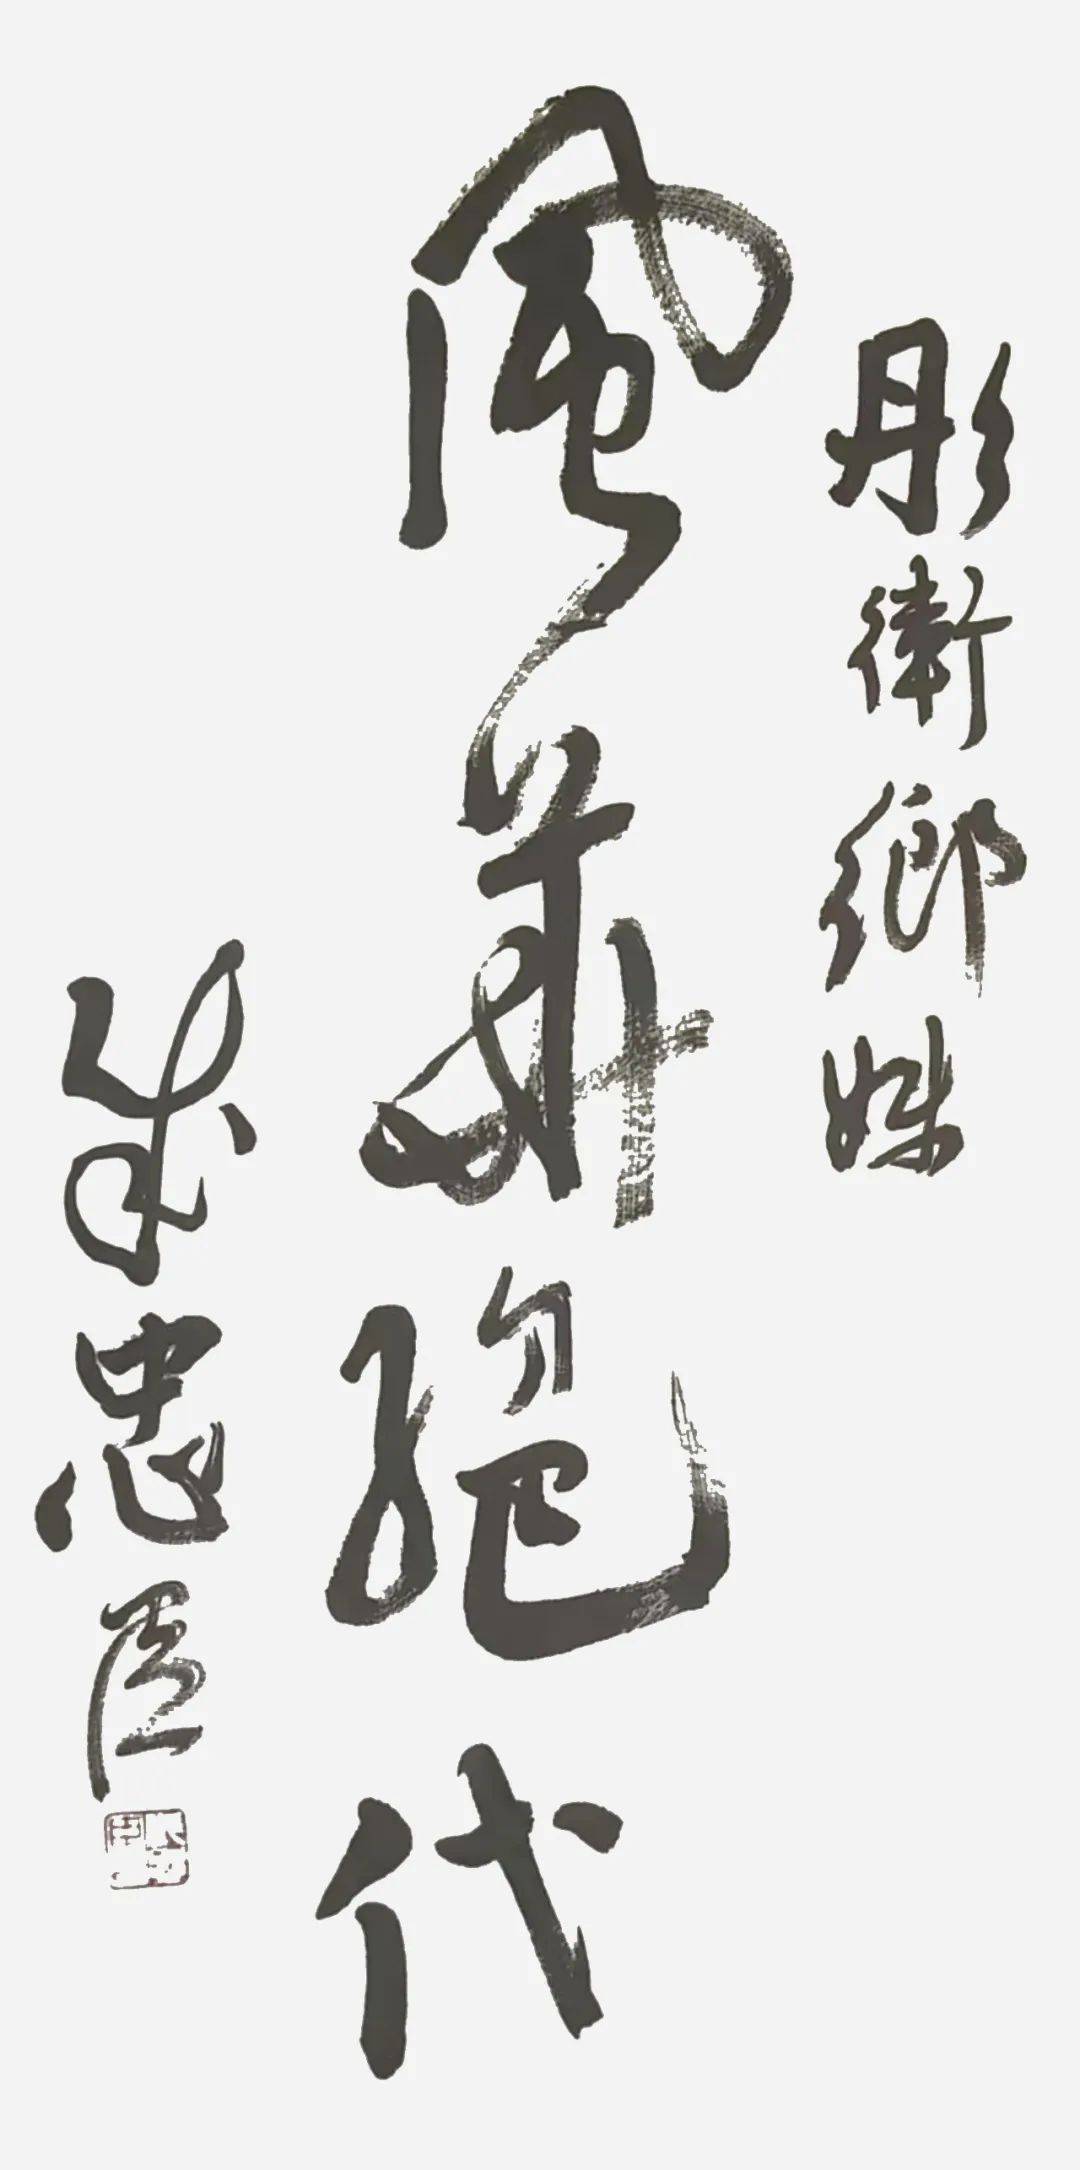 彤衛鄉妹
風華絕代
忠臣